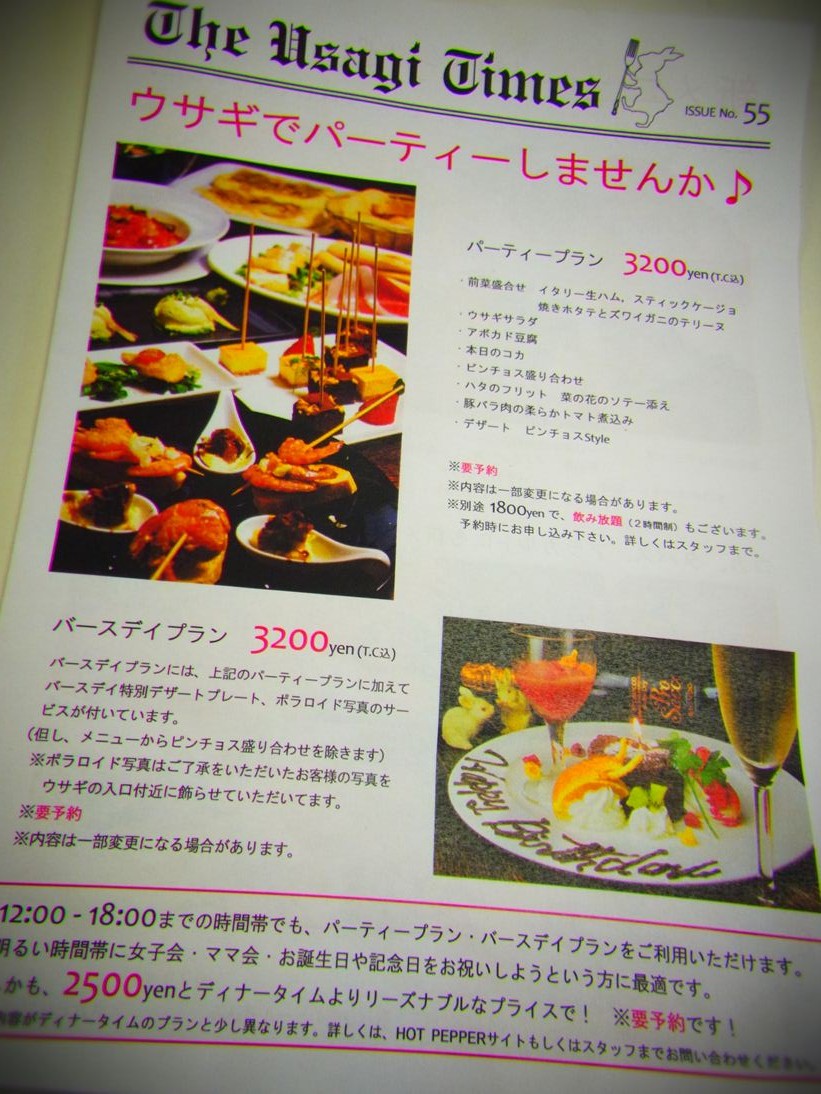 The Usagi Times
ISSUE No. 55
ウサギでパーティーしませんか♪
パーティープラン 3200yen (T.C込)
・前菜盛合せ イタリー生ハム，スティックケージョ
焼きホタテとズワイガニのテリーヌ
・ウサギサラダ
・アボカド豆腐
・本日のコカ
・ピンチョス盛り合わせ
・ハタのフリット 菜の花のソテー添え
・豚バラ肉の柔らかトマト煮込み
・デザート ピンチョスStyle
※要予約
※内容は一部変更になる場合があります。
※別途 1800yen で、飲み放題（２時間制）もございます。
予約時にお申し込み下さい。詳しくはスタッフまで。
バースデイプラン 3200yen (T.C込)
バースデイプランには、上記のパーティープランに加えて
バースデイ特別デザートプレート、ポラロイド写真のサー
ビスが付いています。
（但し、メニューからピンチョス盛り合わせを除きます）
※ポラロイド写真はご了承をいただいたお客様の写真を
ウサギの入口付近に飾らせていただいてます。
※要予約
※内容は一部変更になる場合があります。
Happy Birthday
12:00 - 18:00までの時間帯でも、パーティープラン・バースデイプランをご利用いただけます。
明るい時間帯に女子会・ママ会・お誕生日や記念日をお祝いしようという方に最適です。
かも、2500yenとディナータイムよりリーズナブルなプライスで！ ※要予約です！
内容がディナータイムのプランと少し異なります。詳しくは、HOT PEPPERサイトもしくはスタッフまでお問い合わせください。